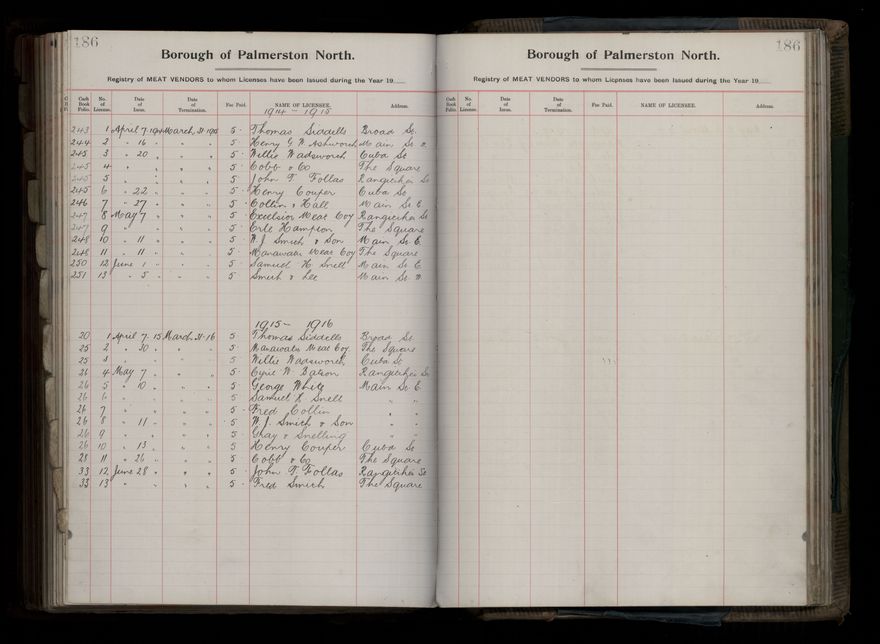 186
Borough of Palmerston North.
Registry of MEAT VENDORS to whom Licenses have been Issued during the Year 19
Cash Book Folio. No. of License. Date of Issue. Date of Termination. Fee Paid. NAME OF LICENSEE. Address.
1914 - 1915
243 1 April 7. 1914 March 31 1915 5 · Thomas Siddells Broad St.
244 2 " 16 " " " " 5 · Henry G W Ashworth Main St.
245 3 " 20 " " " " 5 · Willie Wadsworth Cuba St
245 4 " " " " " 5 · Cobb & Co The Square
245 5 " " " " " 5 · John T Follas Rangitikei St
245 6 " 22 " " " " 5 · Henry Couper Cuba St
246 7 " 27 " " " " 5 · Collin & Hall Main St E
247 8 May 7 " " " " 5 · Excelsior Meat Coy Rangitikei St
247 9 " " " " " 5 · Erle Hampton The Square
248 10 " 11 " " " " 5 W. J. Smith & Son Main St. E
248 11 " 11 " " " " 5 · Manawatu Meat Coy The Square
250 12 June 1 " " " " 5 · Samuel H Snell Main St. E
251 13 " 5 " " " " 5 · Smith & Lee Main St. W
1915 - 1916
20 1 April 7. 15 March 31-16 5 Thomas Siddells Broad St
25 2 " 20 " " " 5 · Manawatu Meat Coy The Square
25 3 " " " " 5 · Willie Wadsworth Cuba St
26 4 May 7 " " " 5 · Cyril W. Batson Rangitikei St
26 5 " 10 " " " 5 · George White Main St. E
26 6 " " " " 5 Samuel H Snell " "
26 7 " " " " 5 · Fred Collin " "
26 8 " 11 " " " 5 · W. J. Smith & Son " "
26 9 " " " " 5 · Gray & Snelling " "
26 10 " 13 " " " 5 Henry Couper Cuba St
28 11 " 26 " " " 5 · Cobb & Co The Square
33 12 June 28 " " " 5 · John T. Follas Rangitikei St
33 13 " " " " 5 · Fred Smith The Square
186
Borough of Palmerston North.
Registry of MEAT VENDORS to whom Licenses have been Issued during the Year 19
Cash Book Folio. No. of License. Date of Issue. Date of Termination. Fee Paid. NAME OF LICENSEE. Address.